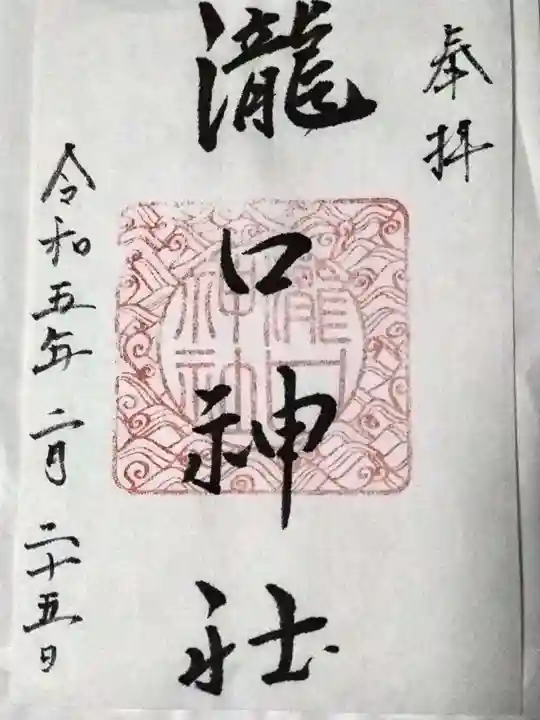 奉拝
瀧口神社
瀧口神社
令和五年二月二十五日